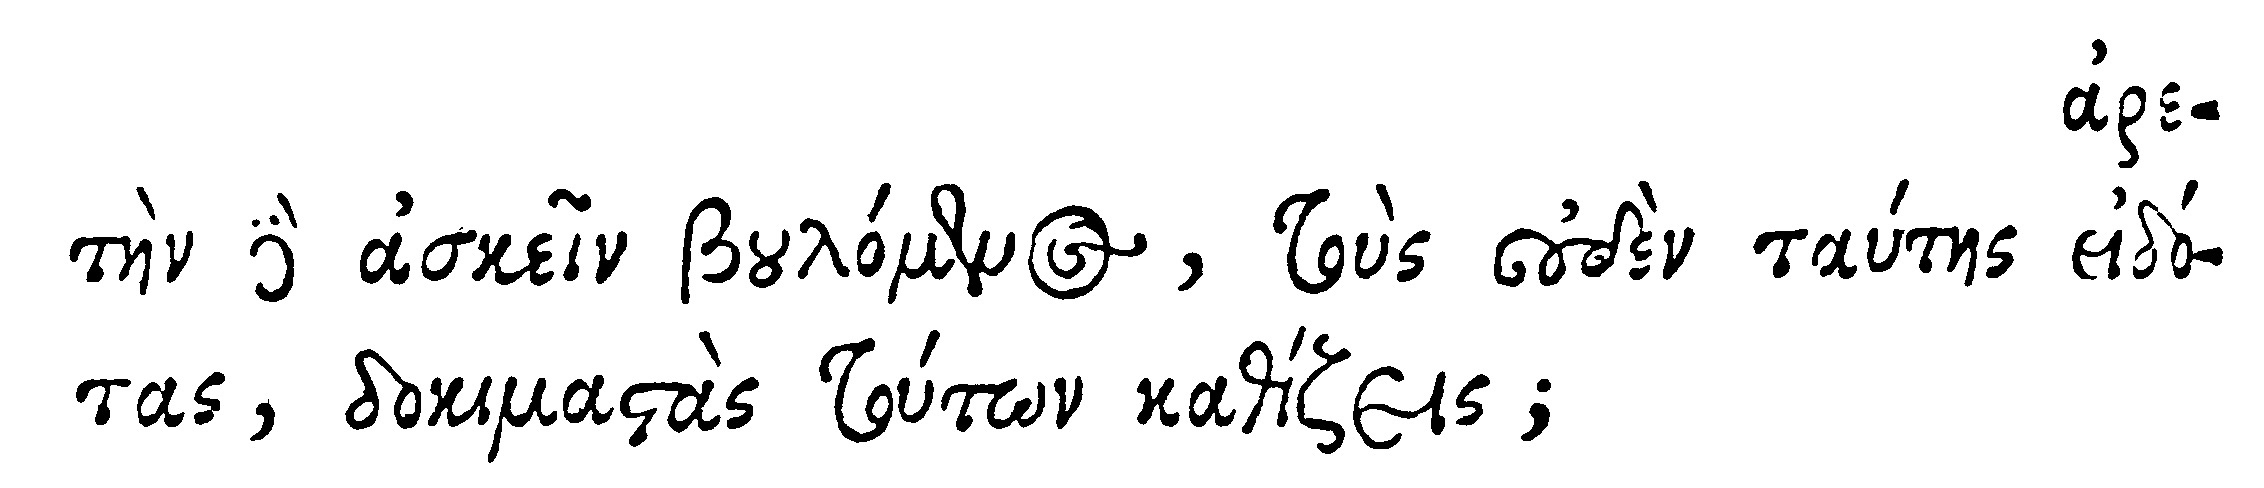 ἀρε-
τὴν ϗ̀ ἀσκεῖν βουλόμενος, τοὺς οὐδὲν ταύτης εἰδό-
τας, δοκιμαστὰς τούτων καθίζεις;